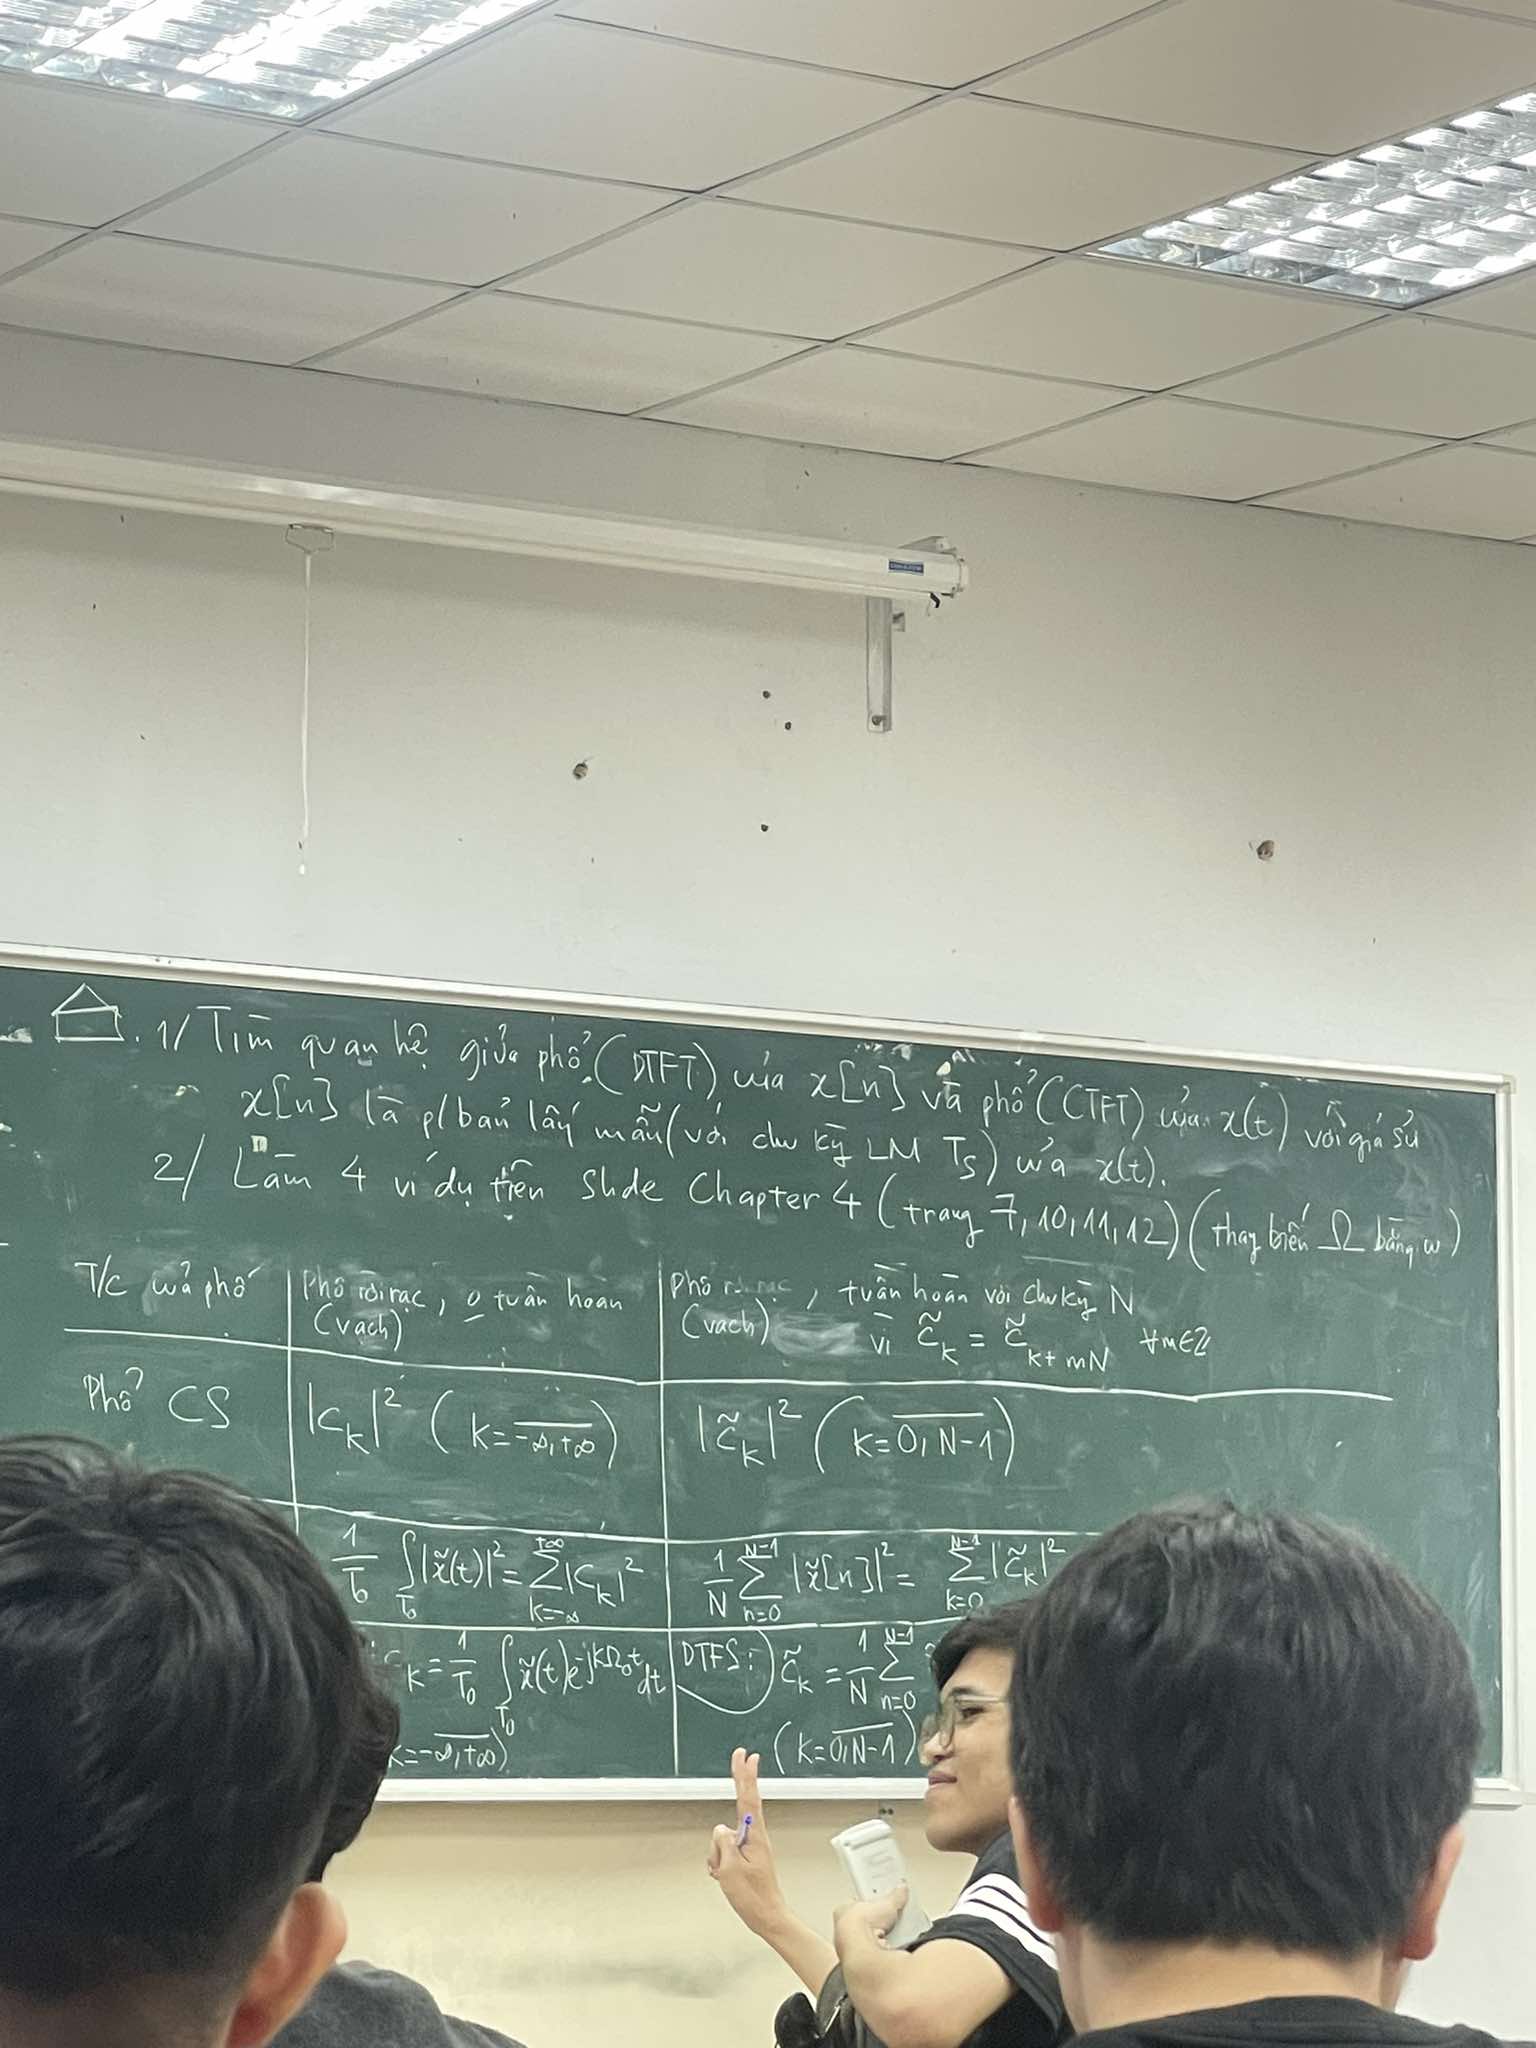 1/ Tìm quan hệ giữa phổ (DTFT) của x[n] và phổ (CTFT) của x(t) với giả sử
x[n] là p/bản lấy mẫu (với chu kỳ LM Ts) của x(t).
2/ Làm 4 ví dụ trên Slide Chapter 4 (trang 7, 10, 11, 12) (thay biến Ω bằng ω)
T/c của phổ
Phổ rời rạc, o tuần hoàn
(vạch)
Phổ rời rạc, tuần hoàn với chu kỳ N
(vạch) vì c̃_k = c̃_{k+mN} ∀m∈ℤ
Phổ CS
|c_k|² (k = \overline{-∞,+∞})
|c̃_k|² (k = \overline{0,N-1})
1/T₀ ∫_{T₀} |x̃(t)|² = ∑_{k=-∞}^{+∞} |c_k|²
1/N ∑_{n=0}^{N-1} |x̃[n]|² = ∑_{k=0}^{N-1} |c̃_k|²
c_k = 1/T₀ ∫_{T₀} x̃(t) e^{-jkΩ₀t} dt
k = \overline{-∞,+∞})
DTFS: c̃_k = 1/N ∑_{n=0}^{N-1}
(k = \overline{0,N-1})